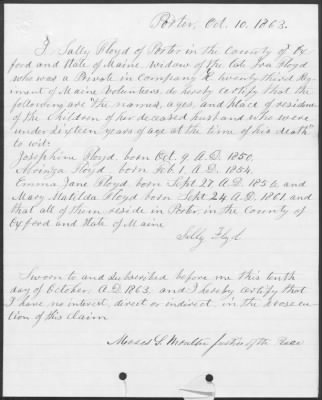 Porter, Oct. 10. 1863.
I Sally Floyd of Porter in the County of Ox-
ford and State of Maine, widow of the late Ira Floyd
who was a Private in Company E twenty third Reg-
iment of Maine Volunteers, do hereby certify that the
following are "the names, ages, and place of residence
of the children of her deceased husband who were
under sixteen years of age at the time of his death"
to wit:
Josephine Floyd, born Oct. 9 A.D. 1850.
Floyd born Feb 1 A.D. 1854.
Emma Jane Floyd born Sept 27 A.D. 1856 and
Mary Matilda Floyd born Sept 24 A.D. 1861 and
that all of them reside in Porter in the County of
Oxford and State of Maine
Sally Floyd
Sworn to and Subscribed before me this tenth
day of October, A.D. 1863 and I hereby certify that
I have no interest, direct or indirect in the prosecu-
tion of this claim
Moses S. Moulton Justice of the Peace